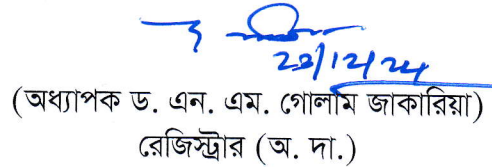 (অধ্যাপক ড. এন. এম. গোলাম জাকারিয়া)
রেজিস্ট্রার (অ. দা.)